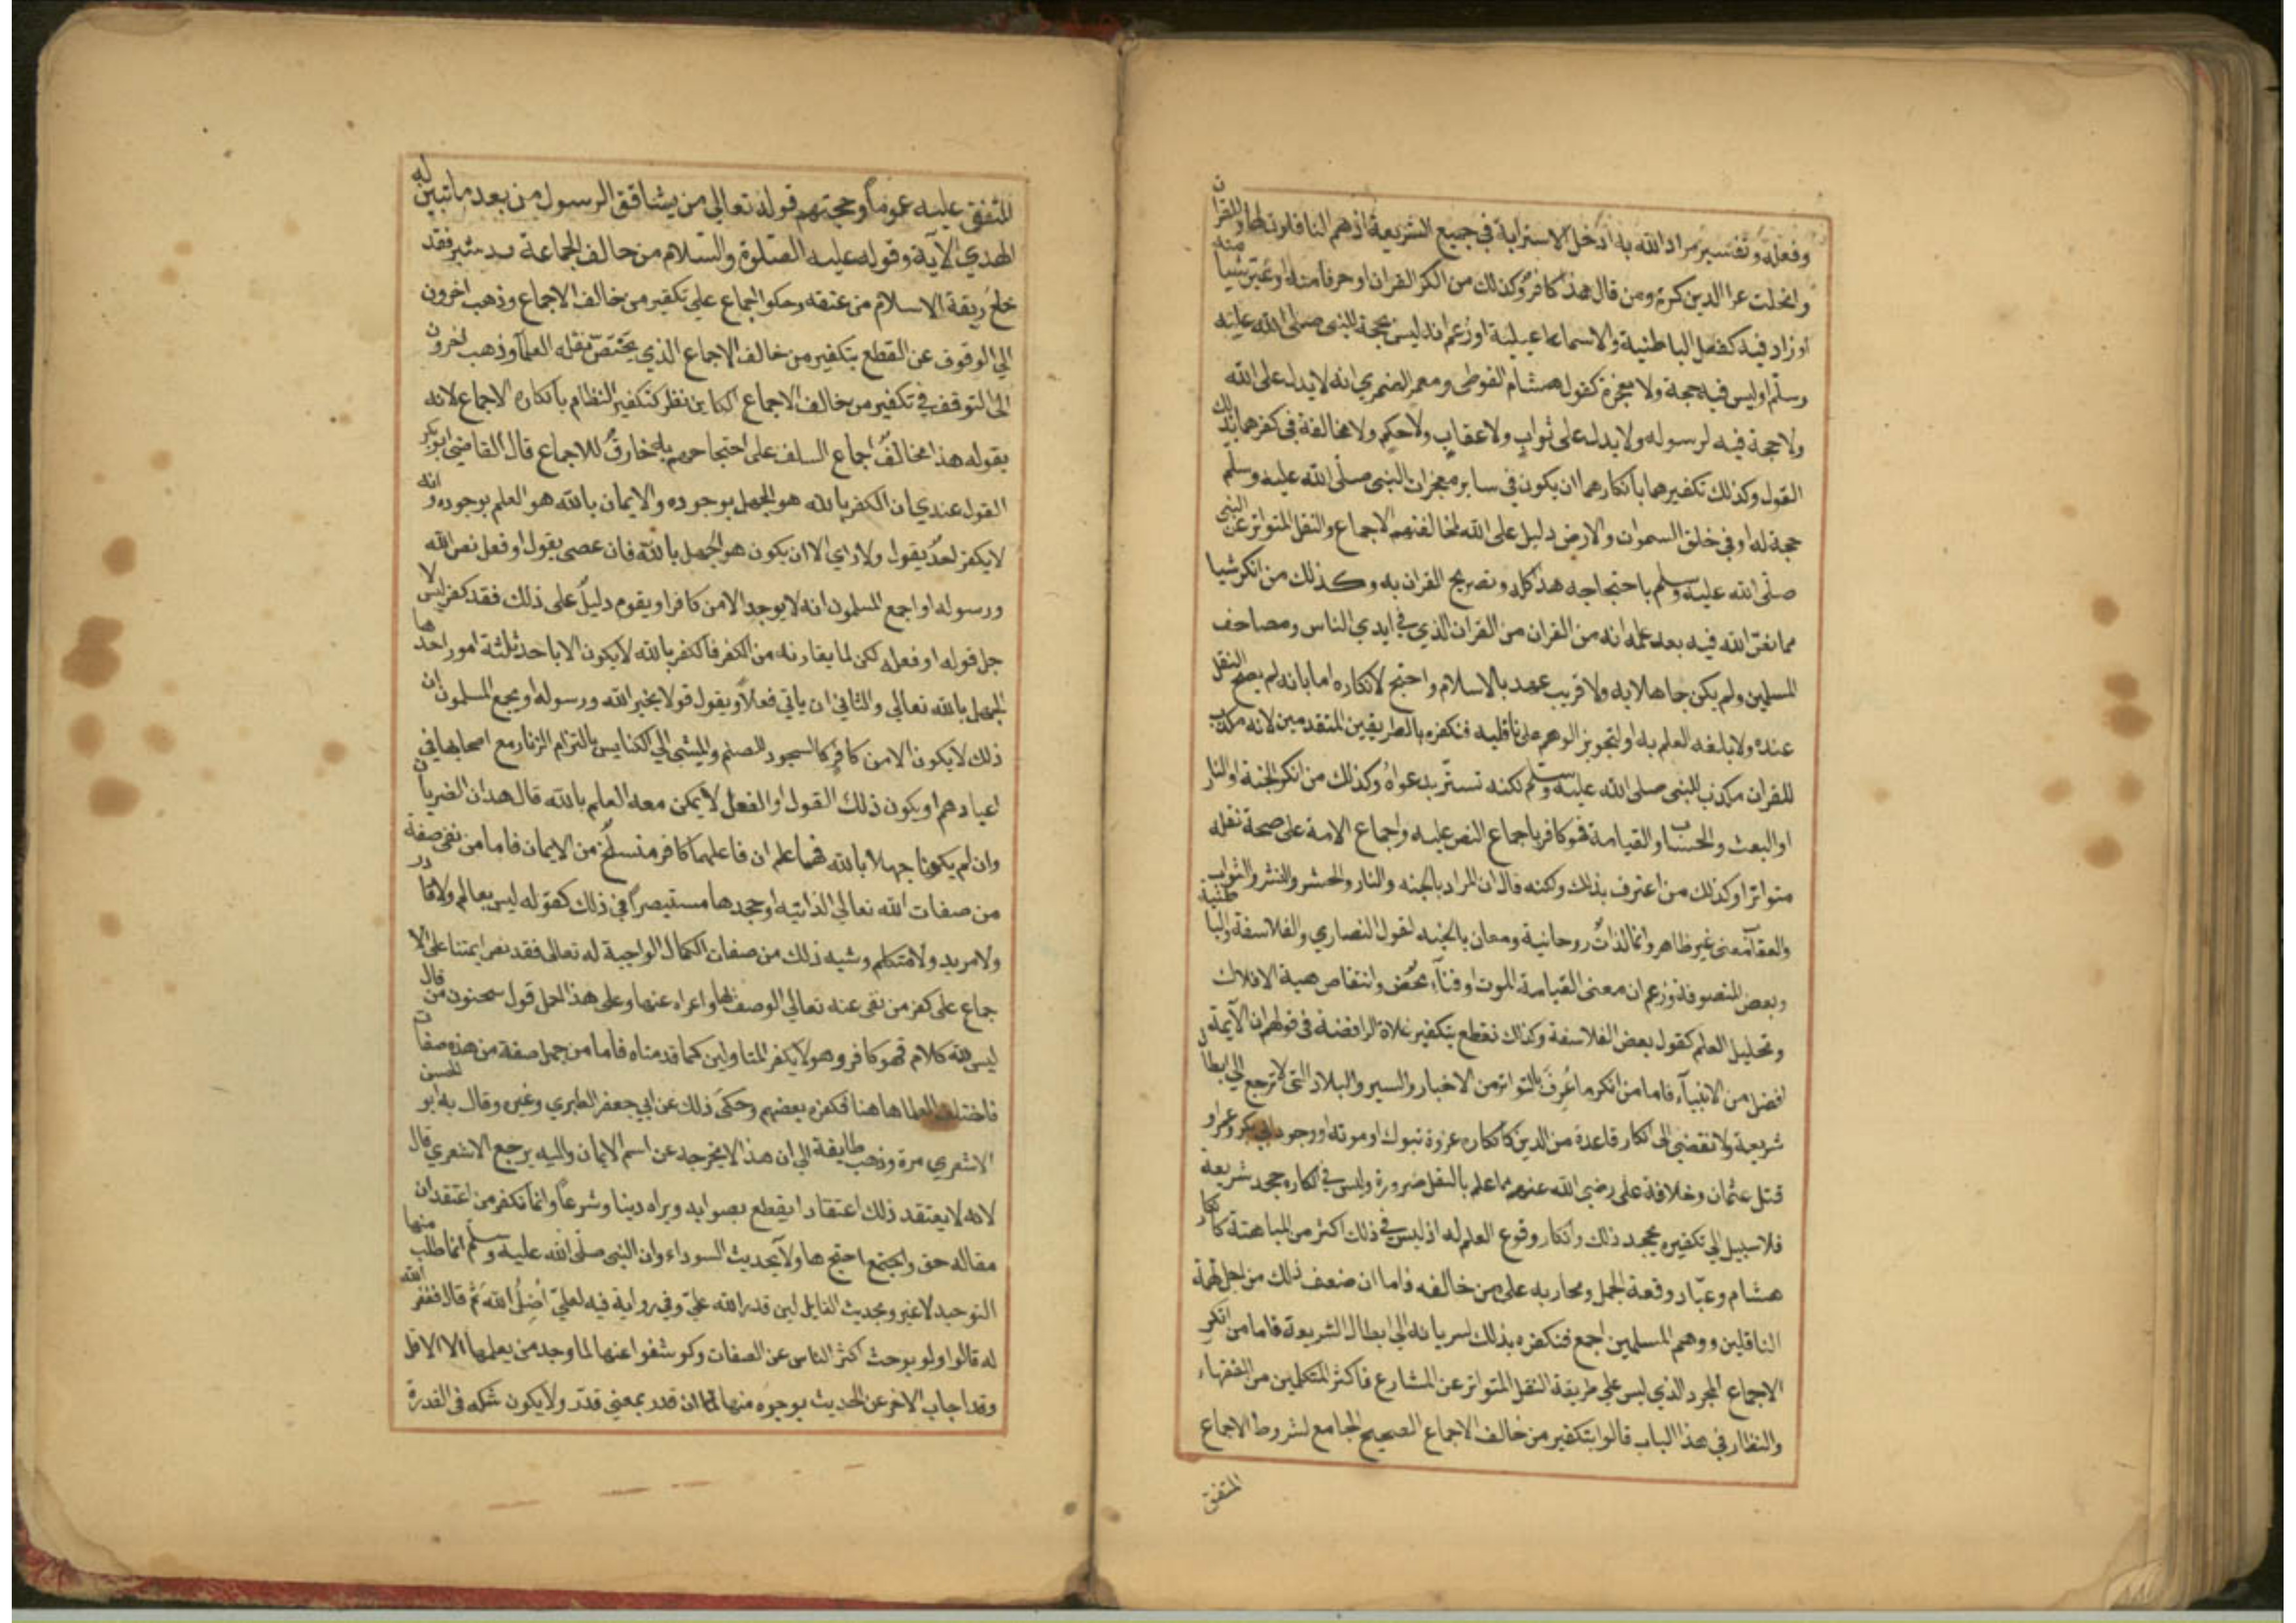 وفعله وتفسير مراد الله به ادخل الاسترابة في جميع الشريعة اذ هم الناقلون لها وللقران
وانحلت عرا الدين كره ومن قال هذا كافر وكذلك من انكر القران او حرفا منه او غير شيا منه
او زاد فيه كفعل الباطنية والاسماعيلية او زعم انه ليس بحجة للنبي صلى الله عليه
وسلم او ليس فيه حجة ولا معجزة كقول هشام الفوطي ومعمر الضمري انه لا يدل على الله
ولا حجة فيه لرسوله ولا يدل على ثواب ولا عقاب ولا حكم ولا مخالفة في كفرهما بذلك
القول وكذلك تكفيرهما بانكارهما ان يكون في ساير معجزات النبي صلى الله عليه وسلم
حجة له او في خلق السموات والارض دليل على الله لمخالفتهم الاجماع والنقل المتواتر عن النبي
صلى الله عليه وسلم باحتجاجه هذا كله وتصريح القران به وكذلك من انكر شيا
مما نص الله فيه بعد علمه انه من القران من القران الذي في ايدي الناس ومصاحف
المسلمين ولم يكن جاهلا به ولا قريب عهد بالاسلام واحتج لانكاره اما بانه لم يصح النقل
عنده ولا بلغه العلم به او لتجويز الوهم على ناقليه فنكفره بالطريقين المتقدمين لانه مكذب
للقران مكذب للنبي صلى الله عليه وسلم لكنه تستر بدعواه وكذلك من انكر الجنة او النار
او البعث والحساب او القيامة فهو كافر باجماع النص عليه واجماع الامة على صحة نقله
متواترا وكذلك من اعترف بذلك ولكنه قال ان المراد بالجنه والنار والحشر والنشر والثواب
والعقاب معنى غير ظاهر وانما لذات روحانية ومعان بالجنه لقول النصاري والفلاسفة والباطنية
وبعض المتصوفة وزعم ان معنى القيامة الموت او فناء محض وانتقاص هية الافلاك
وتحليل العلم كقول بعض الفلاسفة وكذلك نقطع بتكفير غلاة الرافضة في قولهم ان الايمة
افضل من الانبياء فاما من انكر ما عرف بالتواتر من الاخبار والسير والبلاد التي لا ترجع الي ابطال
شريعة ولا تفضي الى انكار قاعدة من الدين كانكاره غزوة تبوك او موته او وجود ابي بكر وعمر او
قتل عثمان وخلافة على رضى الله عنهم مما علم بالنقل ضرورة وليس في انكاره جحد شريعة
فلا سبيل الي تكفيره بجحد ذلك وانكار وقوع العلم له اذ ليس في ذلك اكثر من المباهتة كانكار
هشام وعباد وقعة الجمل ومحاربه على من خالفه فاما ان ضعف ذلك من اجل تهمة
الناقلين ووهم المسلمين اجمع فنكفره بذلك لسريانه الي ابطال الشريعة فاما من انكر
الاجماع المجرد الذي ليس على طريقة النقل المتواتر عن الشارع فاكثر المتكلمين من الفقهاء
والنظار في هذا الباب قالوا بتكفير من خالف الاجماع الصحيح الجامع لشروط الاجماع
المتفق
المتفق عليه عموما وحجتهم قوله تعالي من يشاقق الرسول من بعد ما تبين له
الهدي الاية وقوله عليه الصلوة والسلام من خالف الجماعة قيد شبر فقد
خلع ربقة الاسلام من عنقه وحكوا اجماع على تكفير من خالف الاجماع وذهب اخرون
الي الوقوف عن القطع بتكفير من خالف الاجماع الذي يختص نقله العلما وذهب اخرون
الى التوقف في تكفير من خالف الاجماع الكاين نظر كتكفير النظام بانكاره الاجماع لانه
بقوله هذا مخالف اجماع السلف على احتجاجهم به خارق للاجماع قال القاضي ابو بكر
القول عندي ان الكفر بالله هو الجهل بوجوده والايمان بالله هو العلم بوجوده وانه
لا يكفر احد بقول ولا راي الا ان يكون هو الجهل بالله فان عصى بقول او فعل نص الله
ورسوله او اجمع المسلمون انه لا يوجد الا من كافر او يقوم دليل على ذلك فقد كفر ليس لا
جل قوله او فعله لكن لما يقارنه من الكفر فالكفر بالله لا يكون الا باحد ثلثة امور احدها
الجهل بالله تعالي والثاني ان ياتي فعلا او يقول قولا يخبر الله ورسوله او يجمع المسلمون ان
ذلك لا يكون الا من كافر كالسجود للصنم والمشي الي الكنايس بالتزام الزنار مع اصحابها في
اعيادهم او يكون ذلك القول او الفعل لا يمكن معه العلم بالله قال هذان الضربان
وان لم يكونا جهلا بالله فهما علم ان فاعلهما كافر منسلخ من الايمان فاما من نفى صفة
من صفات الله تعالي الذاتيه او جحدها مستبصرا في ذلك كقوله ليس بعالم ولا قادر
ولا مريد ولا متكلم وشبه ذلك من صفات الكمال الواجبة له تعالى فقد نص ايمتنا على الا
جماع على كفر من نفى عنه تعالي الوصف بها واعراه عنها وعلى هذا حمل قول سحنون من قال
ليس لله كلام فهو كافر وهو لا يكفر المتاولين كما قدمناه فاما من جهل صفة من هذه صفات
فاختلف العلما هاهنا فكفره بعضهم وحكى ذلك عن ابي جعفر الطبري وغيره وقال به ابو الحسن
الاشعري مرة وذهب طايفة الي ان هذا لا يخرجه عن اسم الايمان واليه يرجع الاشعري قال
لانه لا يعتقد ذلك اعتقادا يقطع بصوابه ويراه دينا وشرعا وانما نكفر من اعتقد ان
مقاله حق واجتمع احتج ها ولاء بحديث السوداء وان النبي صلى الله عليه وسلم انما طلب منها
التوحيد لا غير وبحديث القايل لين قدر الله علي وفي رواية فيه لعلي اضل الله ثم قال فغفر الله
له قالوا ولو بوحث اكثر الناس عن الصفات وكوشفوا عنها لما وجد من يعلمها الا الاقل
وقد اجاب الاخر عن الحديث بوجوه منها ان قدر بمعنى قدر ولا يكون شكه في القدرة